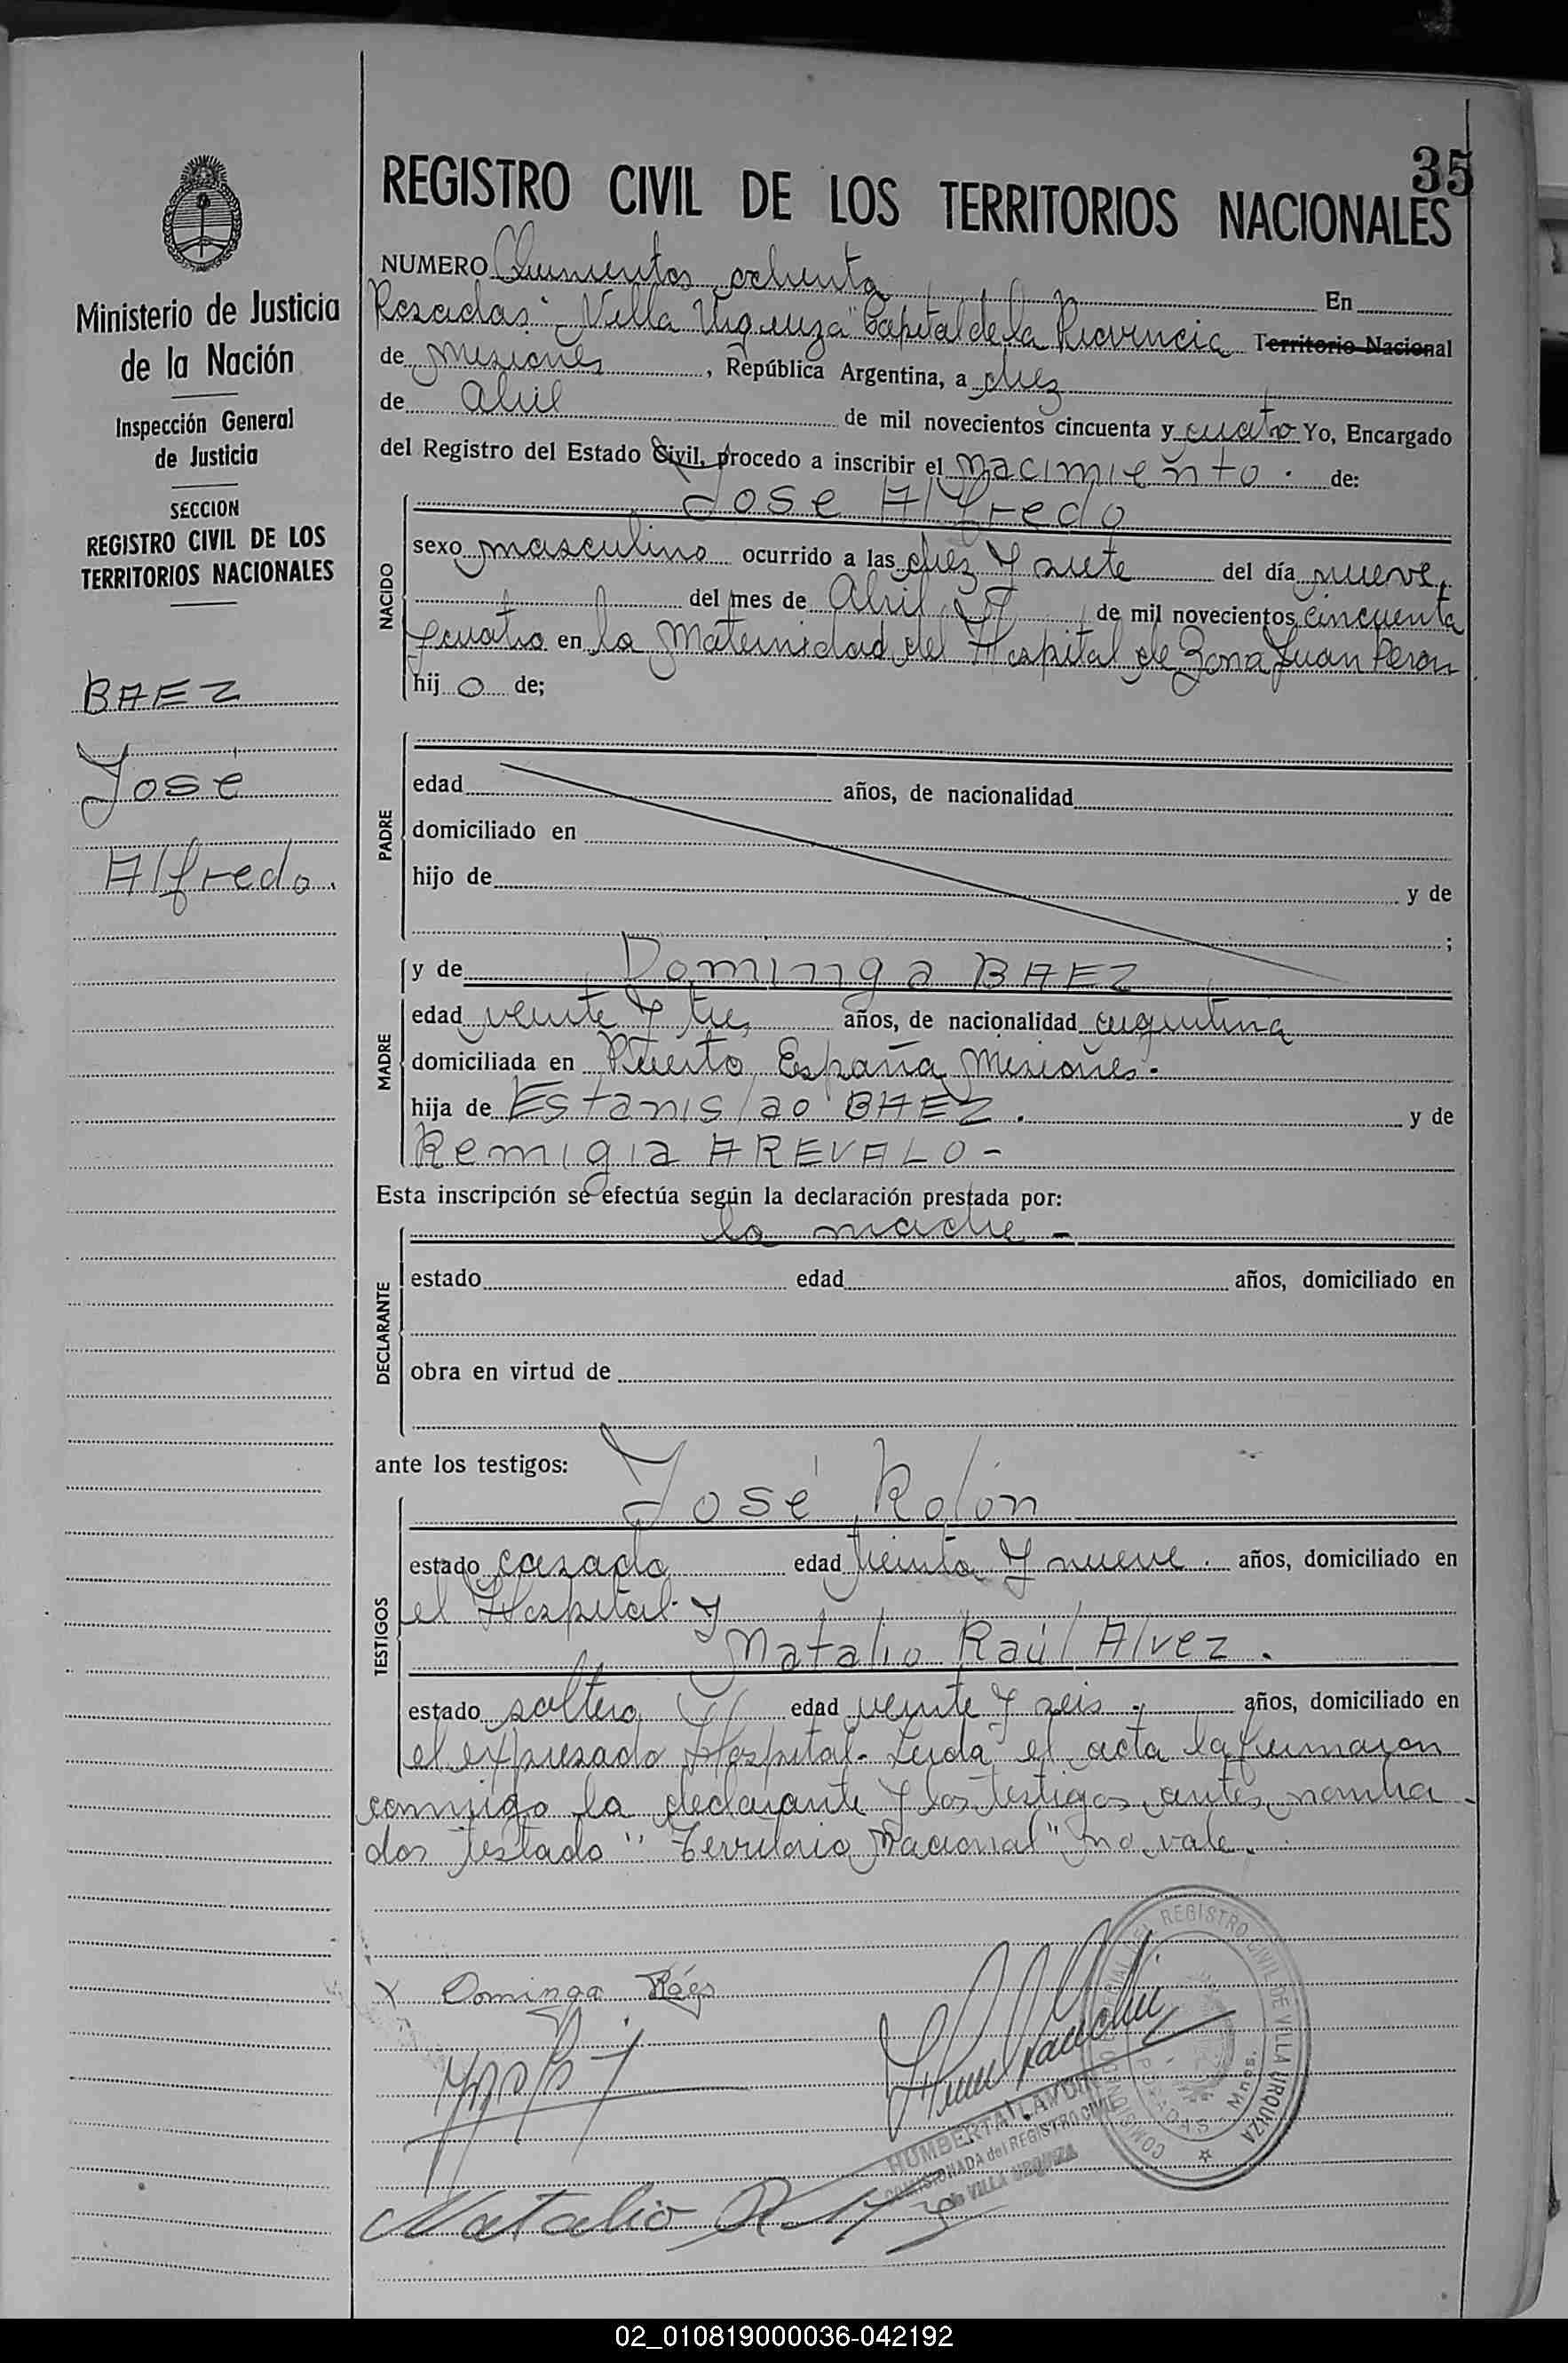 35
REGISTRO CIVIL DE LOS TERRITORIOS NACIONALES
Ministerio de Justicia
de la Nación
Inspección General
de Justicia
SECCION
REGISTRO CIVIL DE LOS
TERRITORIOS NACIONALES
BAEZ
José
Alfredo.
NUMERO Quinientos ochenta En
Posadas "Villa Urquiza" Capital de la Provincia Territorio Nacional
de Misiones, República Argentina, a diez
de Abril de mil novecientos cincuenta y cuatro Yo, Encargado
del Registro del Estado Civil, procedo a inscribir el nacimiento. de:
NACIDO
José Alfredo
sexo masculino ocurrido a las diez y siete del día nueve,
del mes de Abril de mil novecientos cincuenta
y cuatro en la Maternidad del Hospital de Zona Juan Peron
hijo de;
PADRE
edad años, de nacionalidad
domiciliado en
hijo de y de
;
MADRE
y de Dominga BAEZ
edad veinte y tres años, de nacionalidad argentina
domiciliada en Puerto España Misiones.
hija de Estanislao BAEZ. y de
Remigia AREVALO-
Esta inscripción se efectúa según la declaración prestada por:
DECLARANTE
la madre -
estado edad años, domiciliado en
obra en virtud de
ante los testigos:
TESTIGOS
José Rolón
estado casado edad treinta y nueve. años, domiciliado en
el Hospital y
Natalio Raúl Alvez.
estado soltero edad veinte y seis años, domiciliado en
el expresado Hospital. Leida el acta la firmaron
conmigo la declarante y los testigos antes nombra-
dos testado "Territorio Nacional" no vale.
X Dominga Báez
REGISTRO CIVIL DE VILLA URQUIZA
POSADAS - Mnes.
COMISIONADA del REGISTRO CIVIL
de VILLA URQUIZA
Natalio R.
02_010819000036-042192